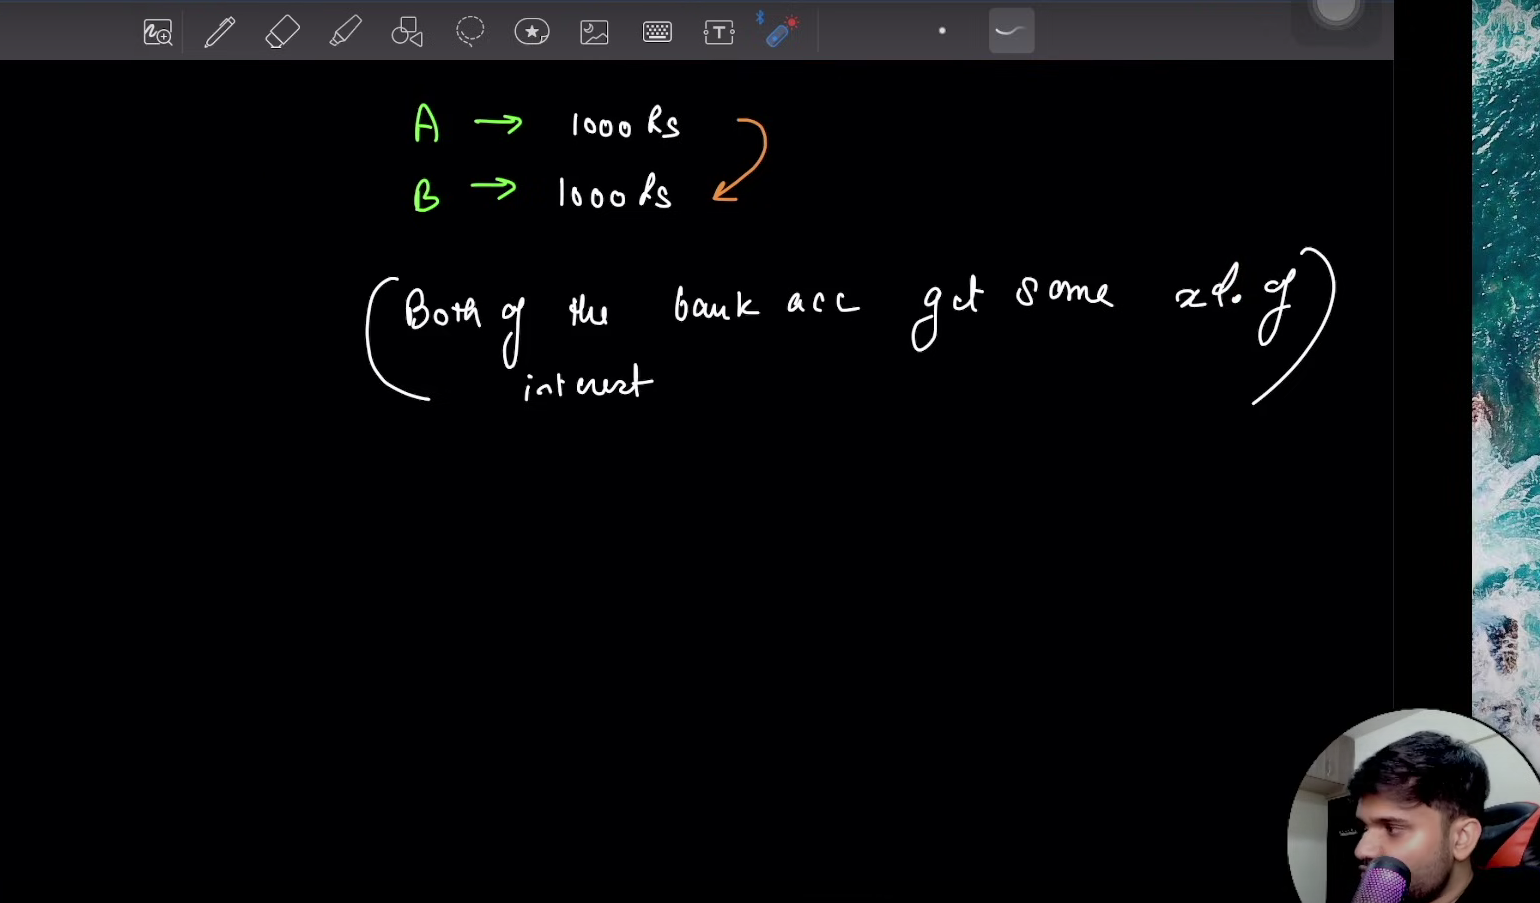 A → 1000 Rs
B → 1000 Rs
(Both of the bank acc get some x% of)
interest